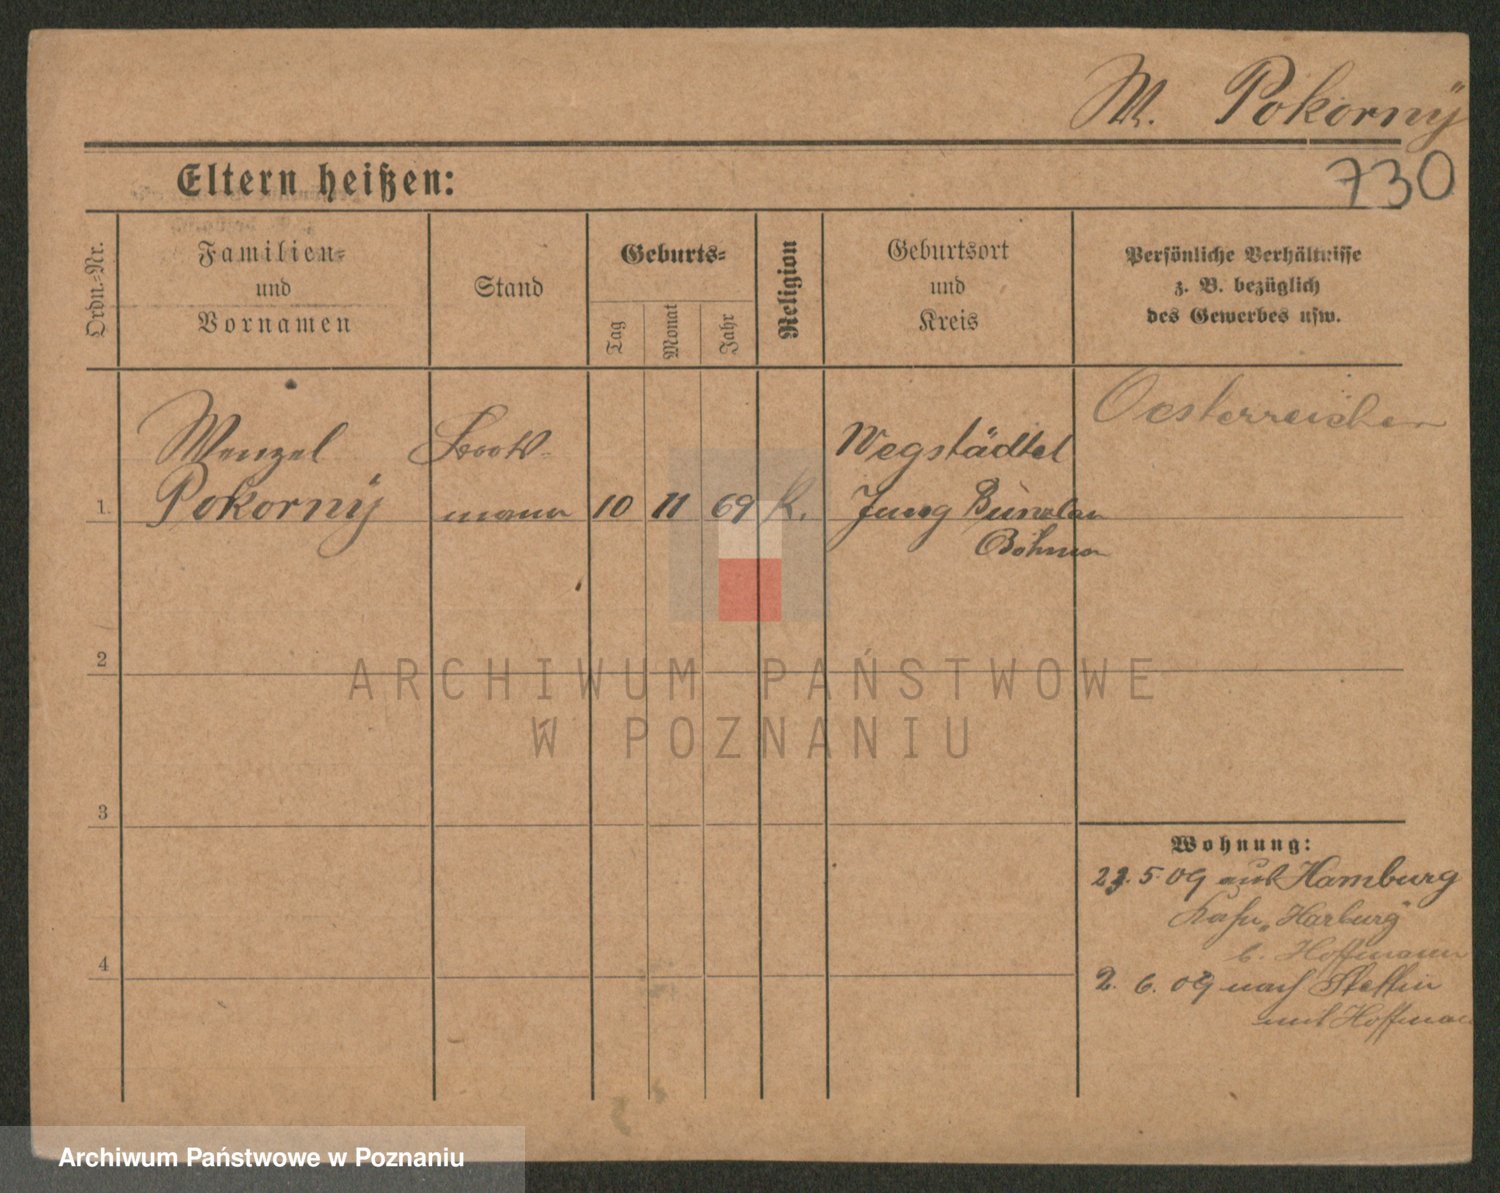 W. Pokorný
730
Eltern heißen:
Ordn.-Nr.
Familien-
und
Vornamen
Stand
Geburts-
Tag
Monat
Jahr
Religion
Geburtsort
und
Kreis
Persönliche Verhältnisse
z. B. bezüglich
des Gewerbes usw.
Wenzel
Pokorný
Boots-
mann
10 11 69 k.
Wegstädtel
Jung Bunzlau
Böhmen
Oesterreicher
1.
2
3
4
Wohnung:
23. 5. 09 aus Hamburg
Kahn „Harburg“
b. Hoffmann
2. 6. 09 nach Stettin
mit Hoffmann
ARCHIWUM PAŃSTWOWE
W POZNANIU
Archiwum Państwowe w Poznaniu